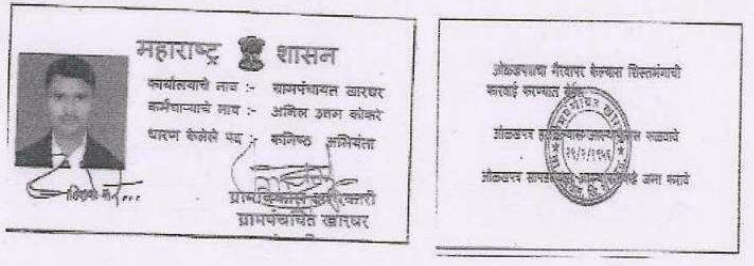 महाराष्ट्र शासन
कार्यालयाचे नाव :- ग्रामपंचायत खारघर
कर्मचाऱ्याचे नाव :- अनिल उत्तम कोकरे
धारण केलेले पद :- कनिष्ठ अभियंता
ग्रामविकास अधिकारी
ग्रामपंचायत खारघर
ओळखपत्राचा गैरवापर केल्यास शिस्तभंगाची
कारवाई करण्यात येईल
ओळखपत्र कळवावे
ओळखपत्र जमा करावे